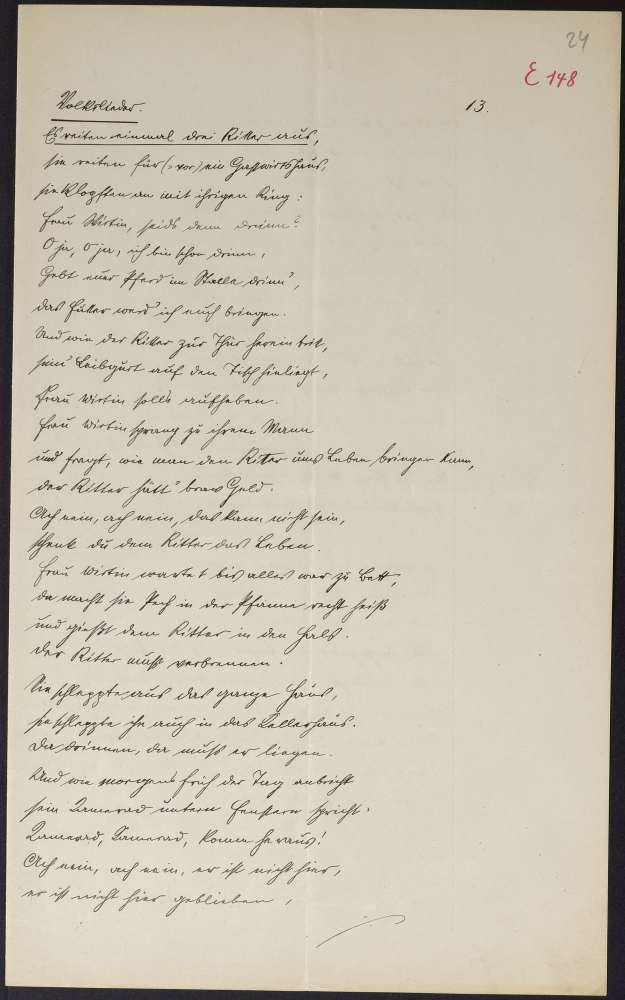 24
E 148
Volkslieder.
13.
Es reiten einmal drei Ritter aus,
sie reiten für (= vor) ein Gastwirtshaus,
sie klopften an mit ihrigen Ring:
Frau Wirtin, seids denn drinn?
O ja, o ja, ich bin schon drinn,
Gebt euer Pferd im Stalle drinn',
das Futter werd' ich euch bringen.
Und wie der Ritter zur Thür herein tritt,
sein' Leibgurt auf den Tisch hinliegt,
Frau Wirtin solls aufheben.
Frau Wirtin sprang zu ihrem Mann
und fragt, wie man den Ritter ums Leben bringen kann,
der Ritter hätt' brav Geld.
Ach nein, ach nein, das kann nicht sein,
schenk du dem Ritter das Leben.
Frau Wirtin wartet bis alles war zu Bett,
da macht sie Pech in der Pfanne recht heiß
und gießt dem Ritter in den Hals.
Der Ritter muß verbrennen.
Sie schleppte aus das ganze Haus,
sie schleppte ihn auch in das Kellerhaus.
Da drinnen, da muß er liegen.
Und wie morgens früh der Tag anbricht
sein Kamerad untern Fenstern spricht:
Kamerad, Kamerad, komm heraus!
Ach nein, ach nein, er ist nicht hier,
er ist nicht hier geblieben,